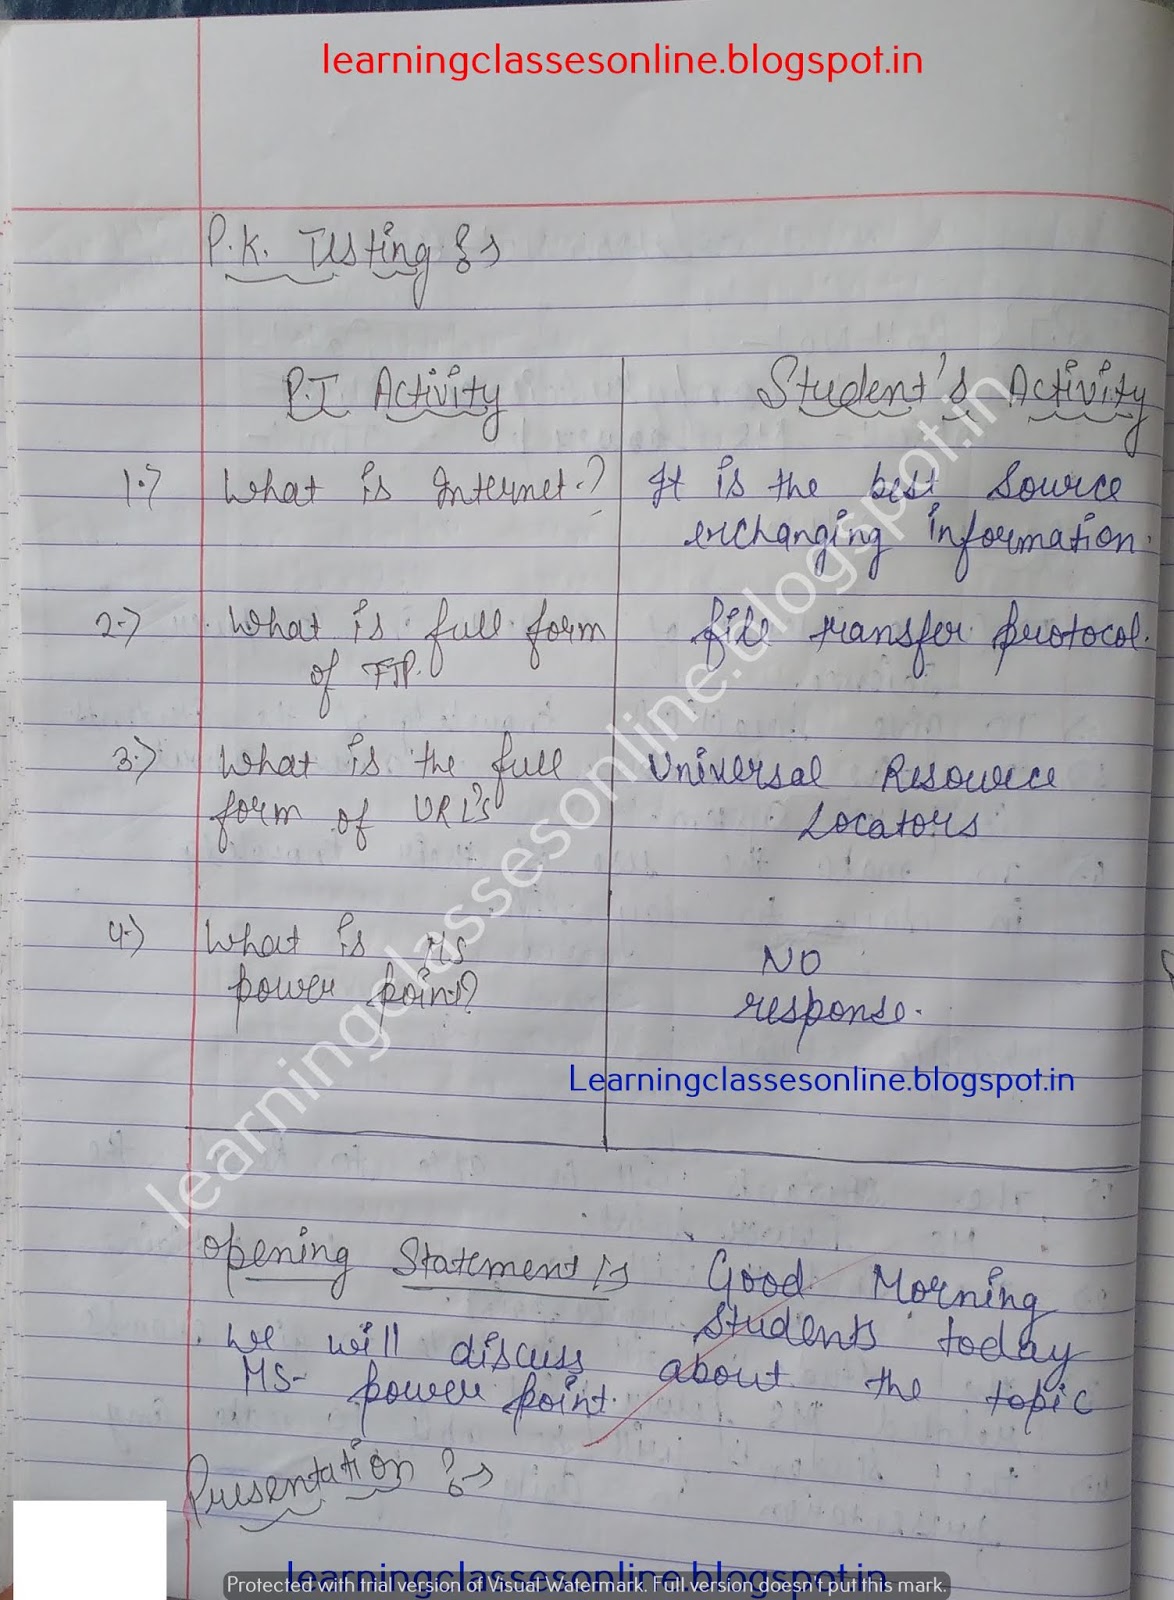 learningclassesonline.blogspot.in
P.K. Testing :-
P.T Activity
Student's Activity
1.) What is Internet.?
It is the best Source
exchanging information.
2.) What is full form
of FTP.
file transfer protocol.
3.) What is the full
form of URL's
Universal Resource
Locators
4.) What is MS
power point?
NO
response.
Learningclassesonline.blogspot.in
learningclassesonline.blogspot.in
Opening Statement :- Good Morning
students today
we will discuss about the topic
MS- power point.
Presentation :-
learningclassesonline.blogspot.in
Protected with trial version of Visual Watermark. Full version doesn't put this mark.